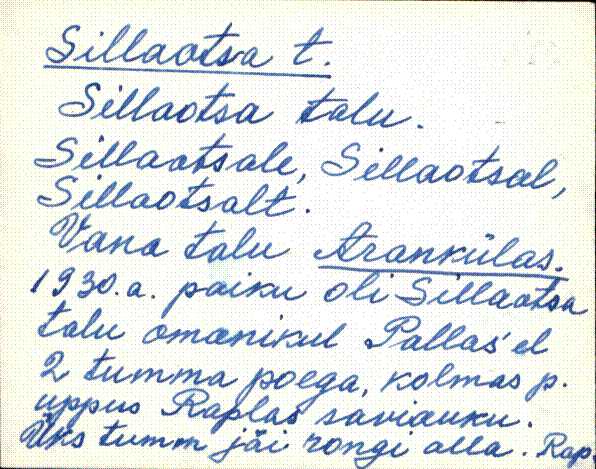 Sillaotsa t.
Sillaotsa talu.
Sillaotsale, Sillaotsal,
Sillaotsalt.
Vana talu Arankülas.
1930.a. paiku oli Sillaotsa
talu omanikul Pallas'el
2 tumma poega, kolmas p.
uppus Raplas saviauku.
Üks tumm jäi rongi alla. Rap.